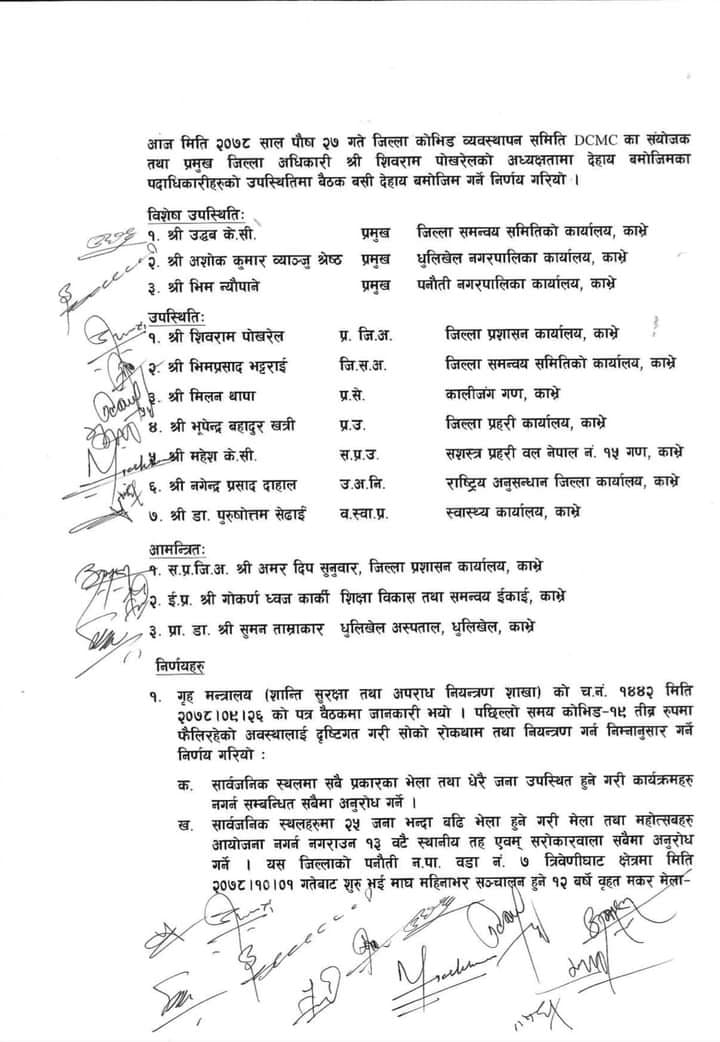 आज मिति २०७८ साल पौष २७ गते जिल्ला कोभिड व्यवस्थापन समिति DCMC का संयोजक
तथा प्रमुख जिल्ला अधिकारी श्री शिवराम पोखरेलको अध्यक्षतामा देहाय बमोजिमका
पदाधिकारीहरुको उपस्थितिमा बैठक बसी देहाय बमोजिम गर्ने निर्णय गरियो ।
विशेष उपस्थितिः
१. श्री उद्धब के.सी. प्रमुख जिल्ला समन्वय समितिको कार्यालय, काभ्रे
२. श्री अशोक कुमार ब्याञ्जु श्रेष्ठ प्रमुख धुलिखेल नगरपालिका कार्यालय, काभ्रे
३. श्री भिम न्यौपाने प्रमुख पनौती नगरपालिका कार्यालय, काभ्रे
उपस्थितिः
१. श्री शिवराम पोखरेल प्र. जि.अ. जिल्ला प्रशासन कार्यालय, काभ्रे
२. श्री भिमप्रसाद भट्टराई जि.स.अ. जिल्ला समन्वय समितिको कार्यालय, काभ्रे
३. श्री मिलन थापा प्र.से. कालीजंग गण, काभ्रे
४. श्री भूपेन्द्र बहादुर खत्री प्र.उ. जिल्ला प्रहरी कार्यालय, काभ्रे
५. श्री महेश के.सी. स.प्र.उ. सशस्त्र प्रहरी वल नेपाल नं. १५ गण, काभ्रे
६. श्री नगेन्द्र प्रसाद दाहाल उ.अ.नि. राष्ट्रिय अनुसन्धान जिल्ला कार्यालय, काभ्रे
७. श्री डा. पुरुषोत्तम सेढाई व.स्वा.प्र. स्वास्थ्य कार्यालय, काभ्रे
आमन्त्रितः
१. स.प्र.जि.अ. श्री अमर दिप सुनुवार, जिल्ला प्रशासन कार्यालय, काभ्रे
२. ई.प्र. श्री गोकर्ण ध्वज कार्की शिक्षा विकास तथा समन्वय ईकाई, काभ्रे
३. प्रा. डा. श्री सुमन ताम्राकार धुलिखेल अस्पताल, धुलिखेल, काभ्रे
निर्णयहरु
१. गृह मन्त्रालय (शान्ति सुरक्षा तथा अपराध नियन्त्रण शाखा) को च.नं. १४४२ मिति
२०७८।०९।२६ को पत्र बैठकमा जानकारी भयो । पछिल्लो समय कोभिड-१९ तीव्र रुपमा
फैलिरहेको अवस्थालाई दृष्टिगत गरी सोको रोकथाम तथा नियन्त्रण गर्न निम्नानुसार गर्ने
निर्णय गरियो :
क. सार्वजनिक स्थलमा सबै प्रकारका भेला तथा धेरै जना उपस्थित हुने गरी कार्यक्रमहरु
नगर्न सम्बन्धित सबैमा अनुरोध गर्ने ।
ख. सार्वजनिक स्थलहरुमा २५ जना भन्दा बढि भेला हुने गरी मेला तथा महोत्सबहरु
आयोजना नगर्न नगराउन १३ वटै स्थानीय तह एवम् सरोकारवाला सबैमा अनुरोध
गर्ने । यस जिल्लाको पनौती न.पा. वडा नं. ७ त्रिवेणीघाट क्षेत्रमा मिति
२०७८।१०।०१ गतेबाट शुरु भई माघ महिनाभर सञ्चालन हुने १२ बर्षे वृहत मकर मेला-